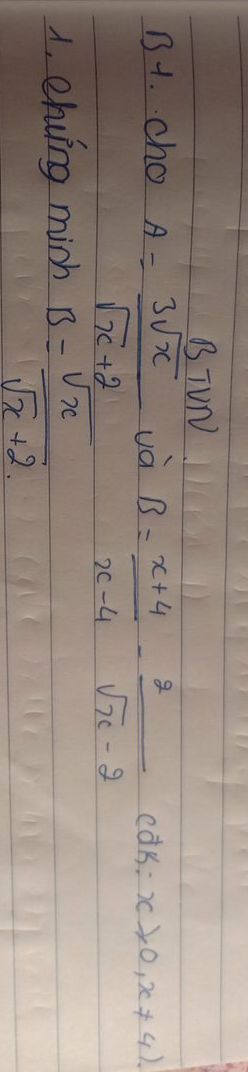 BTVN
B1. cho A = 3√x / √x + 2 và B = x+4 / x-4 - 2 / √x - 2 (đk: x ≥ 0, x ≠ 4).
1, chứng minh B = √x / √x + 2.